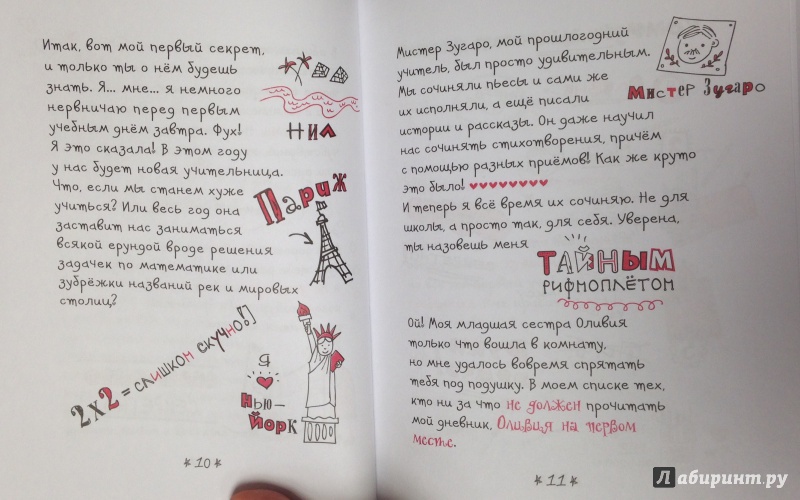 Итак, вот мой первый секрет,
и только ты о нём будешь
знать. Я... мне... я немного
нервничаю перед первым
учебным днём завтра. Фух!
Я это сказала! В этом году
у нас будет новая учительница.
Что, если мы станем хуже
учиться? Или весь год она
заставит нас заниматься
всякой ерундой вроде решения
задачек по математике или
зубрёжки названий рек и мировых
столиц?
НИЛ
ПАРИЖ
2х2 = слишком скучно!
Я
НЬЮ-
ЙОРК
*10*
Мистер Зугаро, мой прошлогодний
учитель, был просто удивительным.
Мы сочиняли пьесы и сами же
их исполняли, а ещё писали
истории и рассказы. Он даже научил
нас сочинять стихотворения, причём
с помощью разных приёмов! Как же круто
это было! ♥♥♥♥♥♥♥♥
И теперь я всё время их сочиняю. Не для
школы, а просто так, для себя. Уверена,
ты назовёшь меня
ТАЙНЫМ
РИФМОПЛЁТОМ
Мистер Зугаро
Ой! Моя младшая сестра Оливия
только что вошла в комнату,
но мне удалось вовремя спрятать
тебя под подушку. В моем списке тех,
кто ни за что не должен прочитать
мой дневник, Оливия на первом
месте.
*11*
Лабиринт.ру